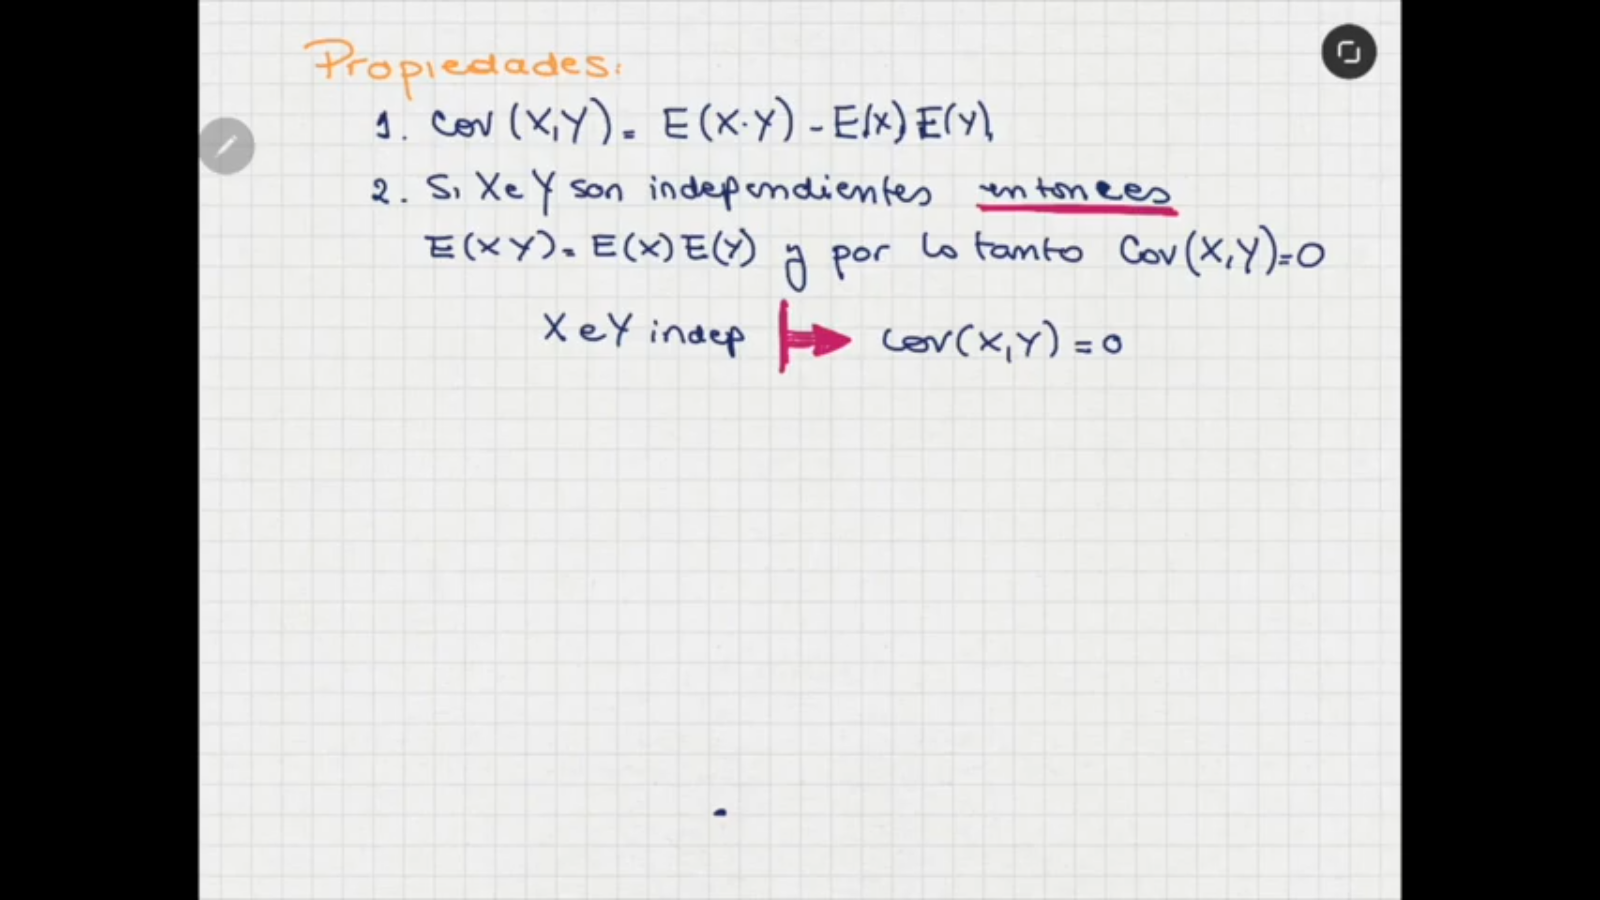 Propiedades:
1. Cov (X,Y) = E(X·Y) - E(X) E(Y)
2. Si X e Y son independientes entonces
E(XY) = E(X) E(Y) y por lo tanto Cov(X,Y)=0
X e Y indep ↦ Cov(X,Y) = 0